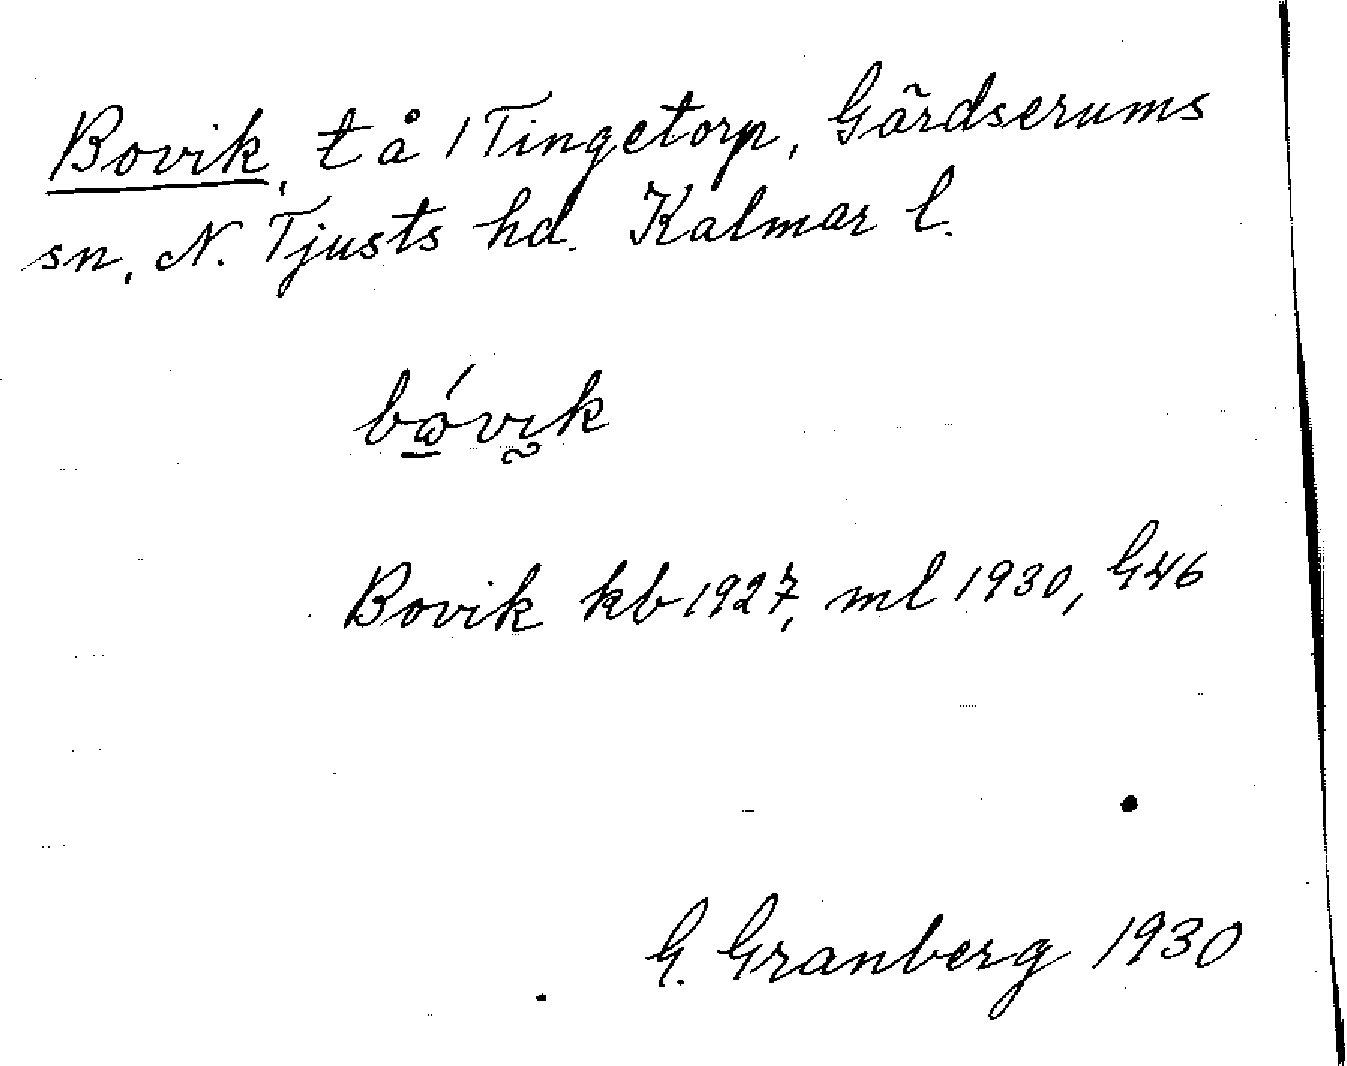 Bovik, t å 1 Tingetorp, Gärdserums
sn, N. Tjusts hd. Kalmar l.
bóvik
Bovik kb 1927, ml 1930, G46
G. Granberg 1930